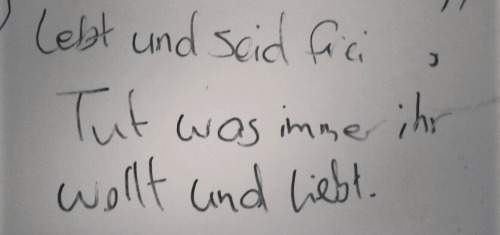 ) Lebt und seid frei , "
Tut was immer ihr
wollt und liebt.